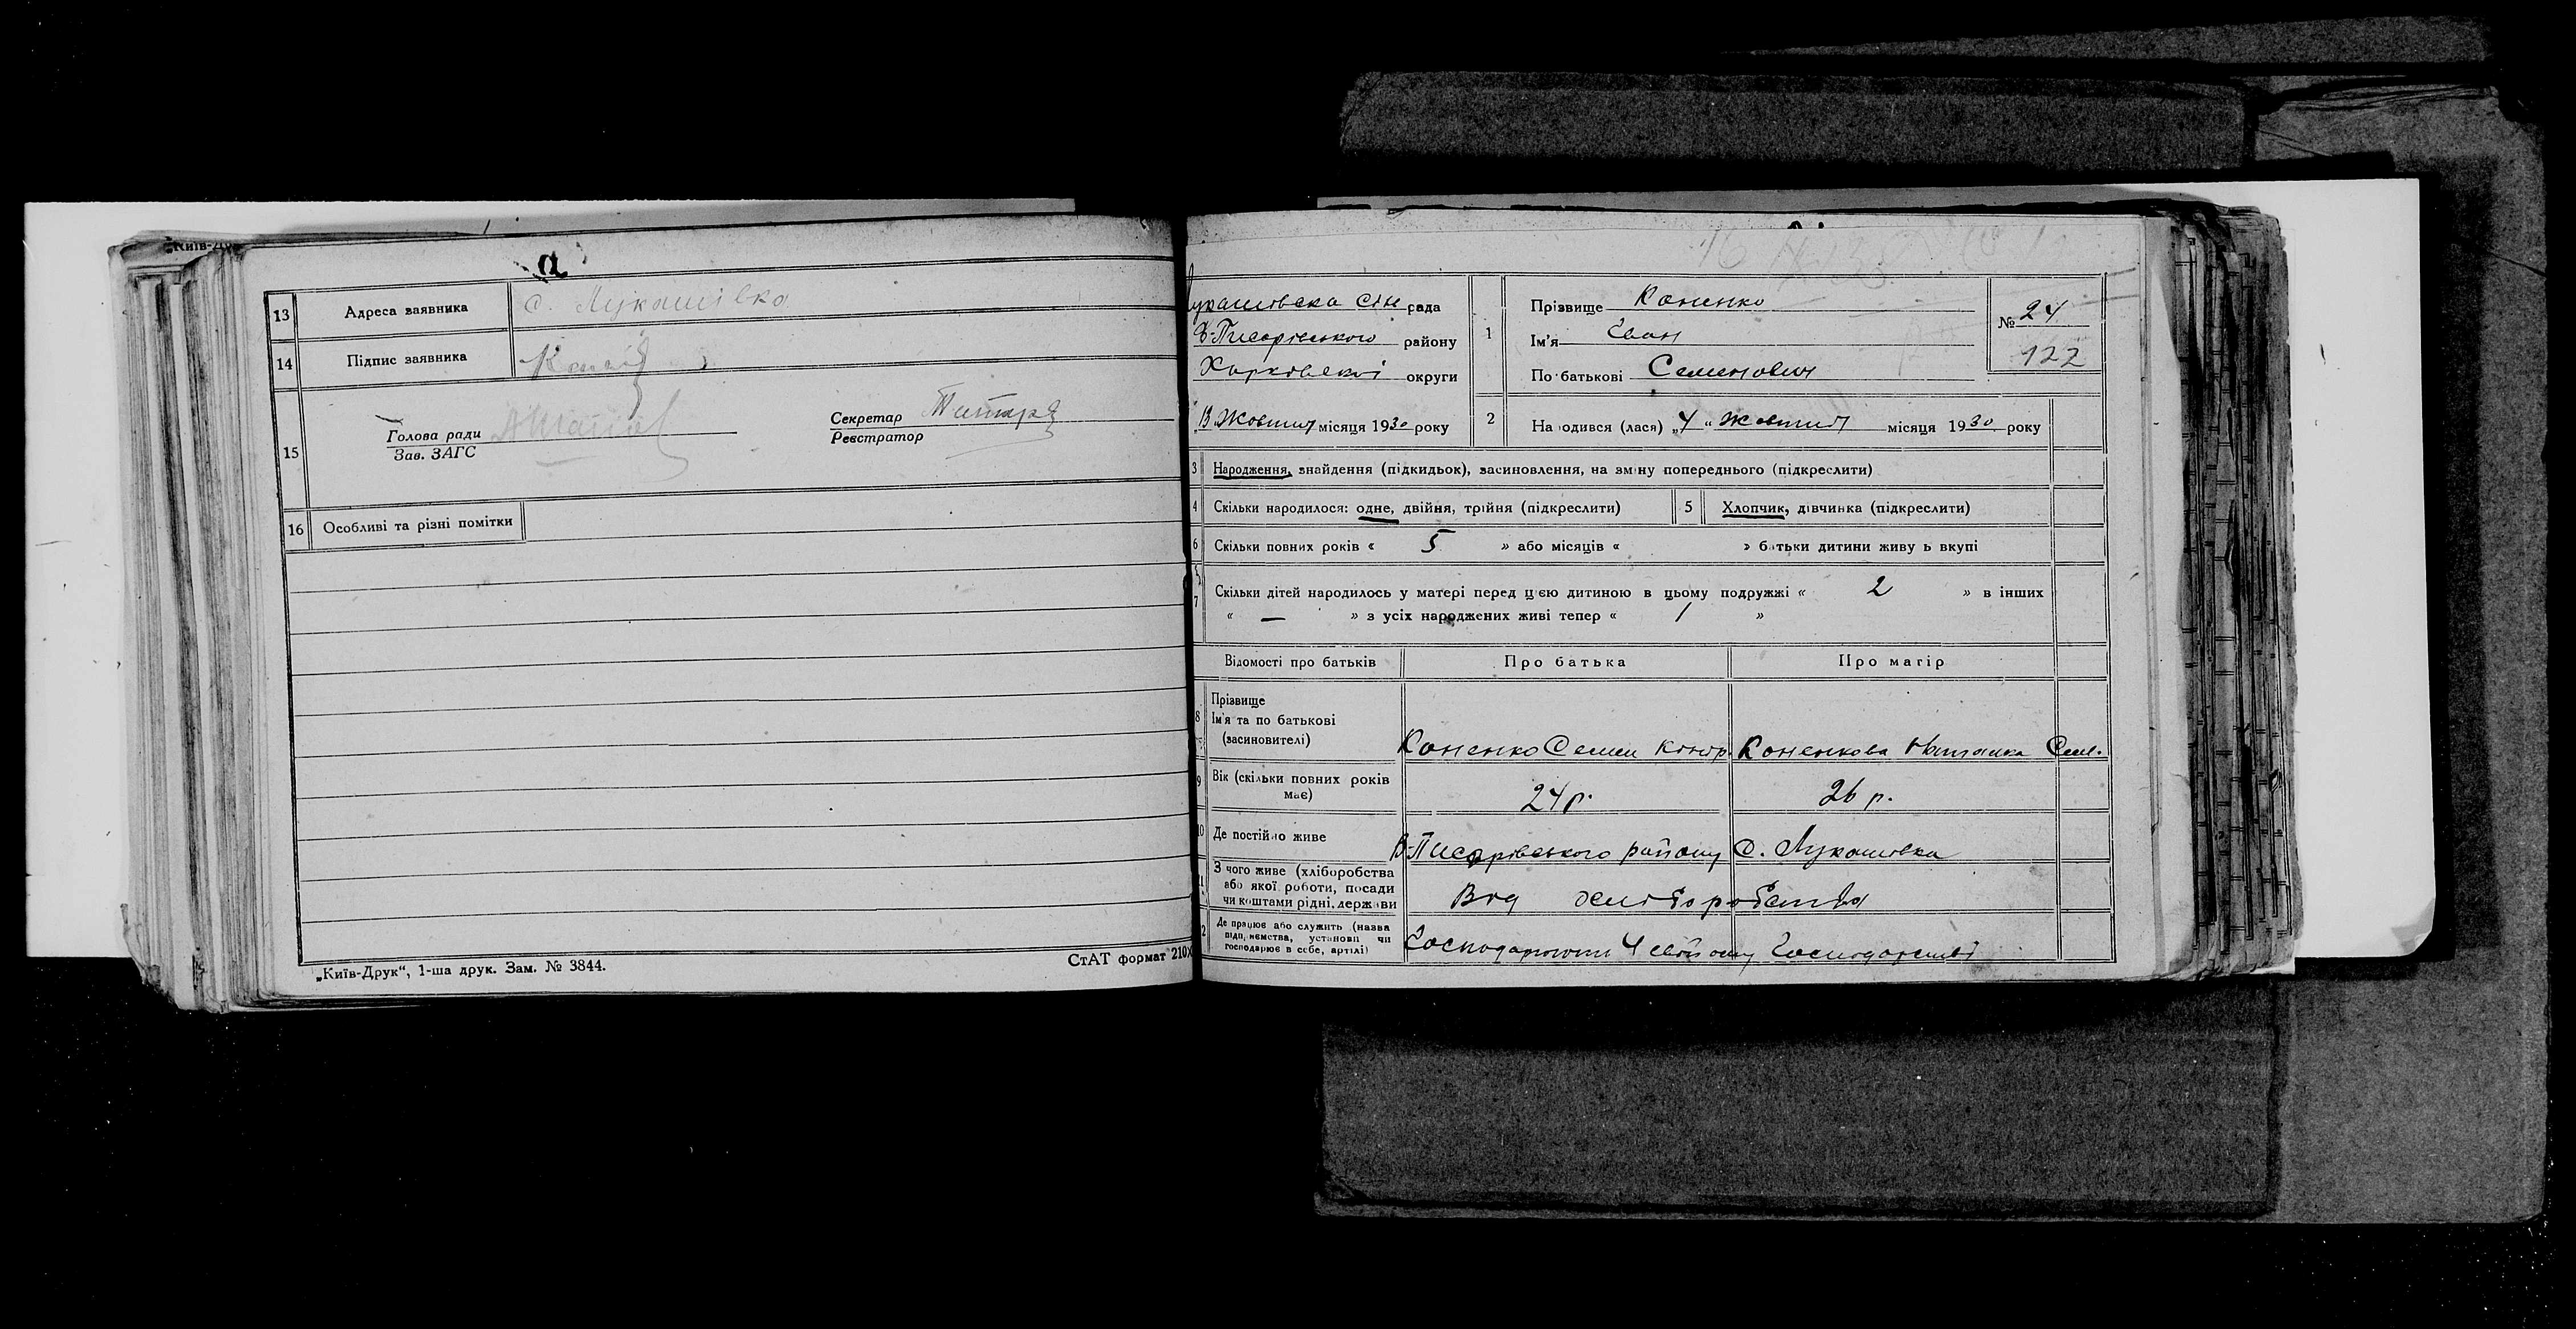 13 Адреса заявника с. Лукашівка
14 Підпис заявника
15
Голова ради
Зав. ЗАГС
Секретар Титар
Реєстратор
16 Особливі та різні помітки
„Київ-Друк“, 1-ша друк. Зам. № 3844.
СтАТ формат 210
Лукашівска Сіл рада
В-Писарівського району
Харківської округи
Жовтня місяця 1930 року
1 Прізвище Коненко
Ім'я Іван
По батькові Семенович
№ 24
122
2 На одився (лася) „4“ Жовтня місяця 1930 року
3 Народження, знайдення (підкидьок), засиновлення, на зміну попереднього (підкреслити)
4 Скільки народилося: одне, двійня, трійня (підкреслити) 5 Хлопчик, дівчинка (підкреслити)
6 Скільки повних років « 5 » або місяців « » батьки дитини живу ь вкупі
7 Скільки дітей народилось у матері перед цією дитиною в цьому подружжі « 2 » в інших
« — » з усіх народжених живі тепер « 1 »
Відомості про батьків Про батька Про матір
8 Прізвище
Ім'я та по батькові
(засиновителі)
Коненко Семен Конор. Коненкова Наталка Сем.
9 Вік (скільки повних років має) 24 р. 26 р.
10 Де постійно живе В-Писарівського району с. Лукашівка
11 З чого живе (хліборобства
або якої роботи, посади
чи коштами рідні, держави
Від хліборобства
12 Де працює або служить (назва
підприємства, установи чи
господарює в себе, артілі)
Господарюють У своїому Господарстві